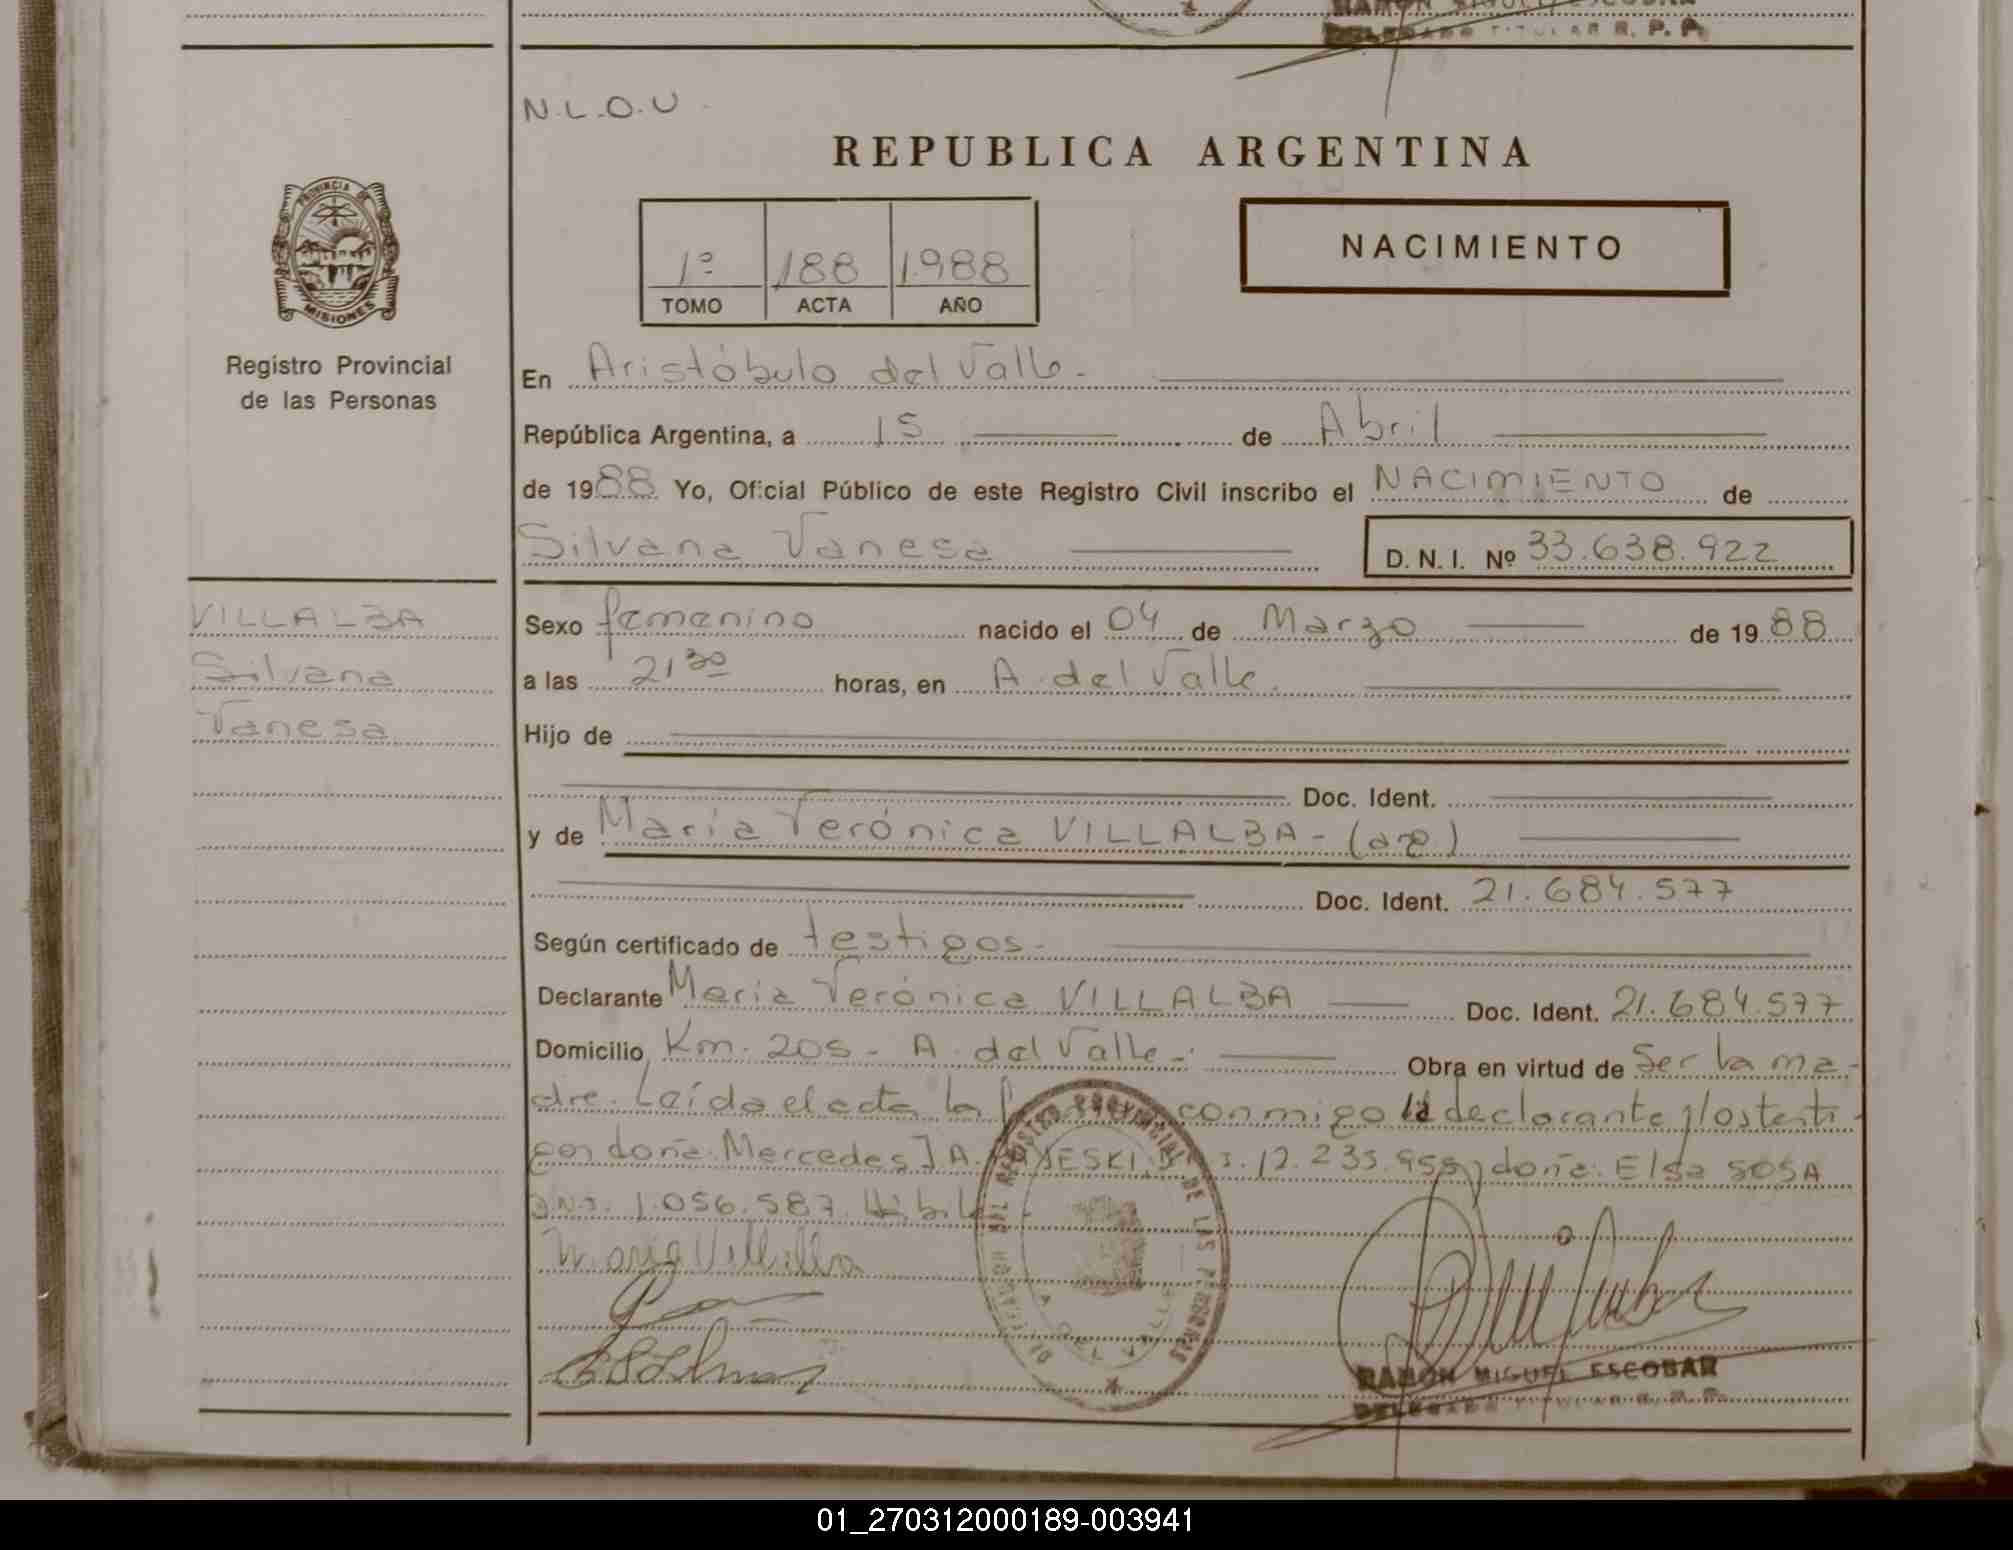 RAMON MIGUEL ESCOBAR
DELEGADO TITULAR R. P. P.
N.L.O.U.
REPUBLICA ARGENTINA
PROVINCIA DE
MISIONES
Registro Provincial
de las Personas
1º 188 1988
TOMO ACTA AÑO
NACIMIENTO
En Aristóbulo del Valle.-
República Argentina, a 15 de Abril
de 1988 Yo, Oficial Público de este Registro Civil inscribo el NACIMIENTO de
Silvana Vanesa D. N. I. Nº 33.638.922
VILLALBA
Silvana
Vanesa
Sexo femenino nacido el 04 de Marzo de 1988
a las 21 30 horas, en A. del Valle.
Hijo de
Doc. Ident.
y de María Verónica VILLALBA - (arg)
Doc. Ident. 21.684.577
Según certificado de testigos.-
Declarante María Verónica VILLALBA Doc. Ident. 21.684.577
Domicilio Km. 205 - A. del Valle.- Obra en virtud de Ser la ma-
dre. Leída el acta la conmigo la declarante y los testi-
gos doña Mercedes 12.235.955 y doña Elsa SOSA
D.N.I. 1.056.587.
Maria Villalba
REGISTRO PROVINCIAL DE LAS PERSONAS
RAMON MIGUEL ESCOBAR
DELEGADO TITULAR R. P. P.
01_270312000189-003941